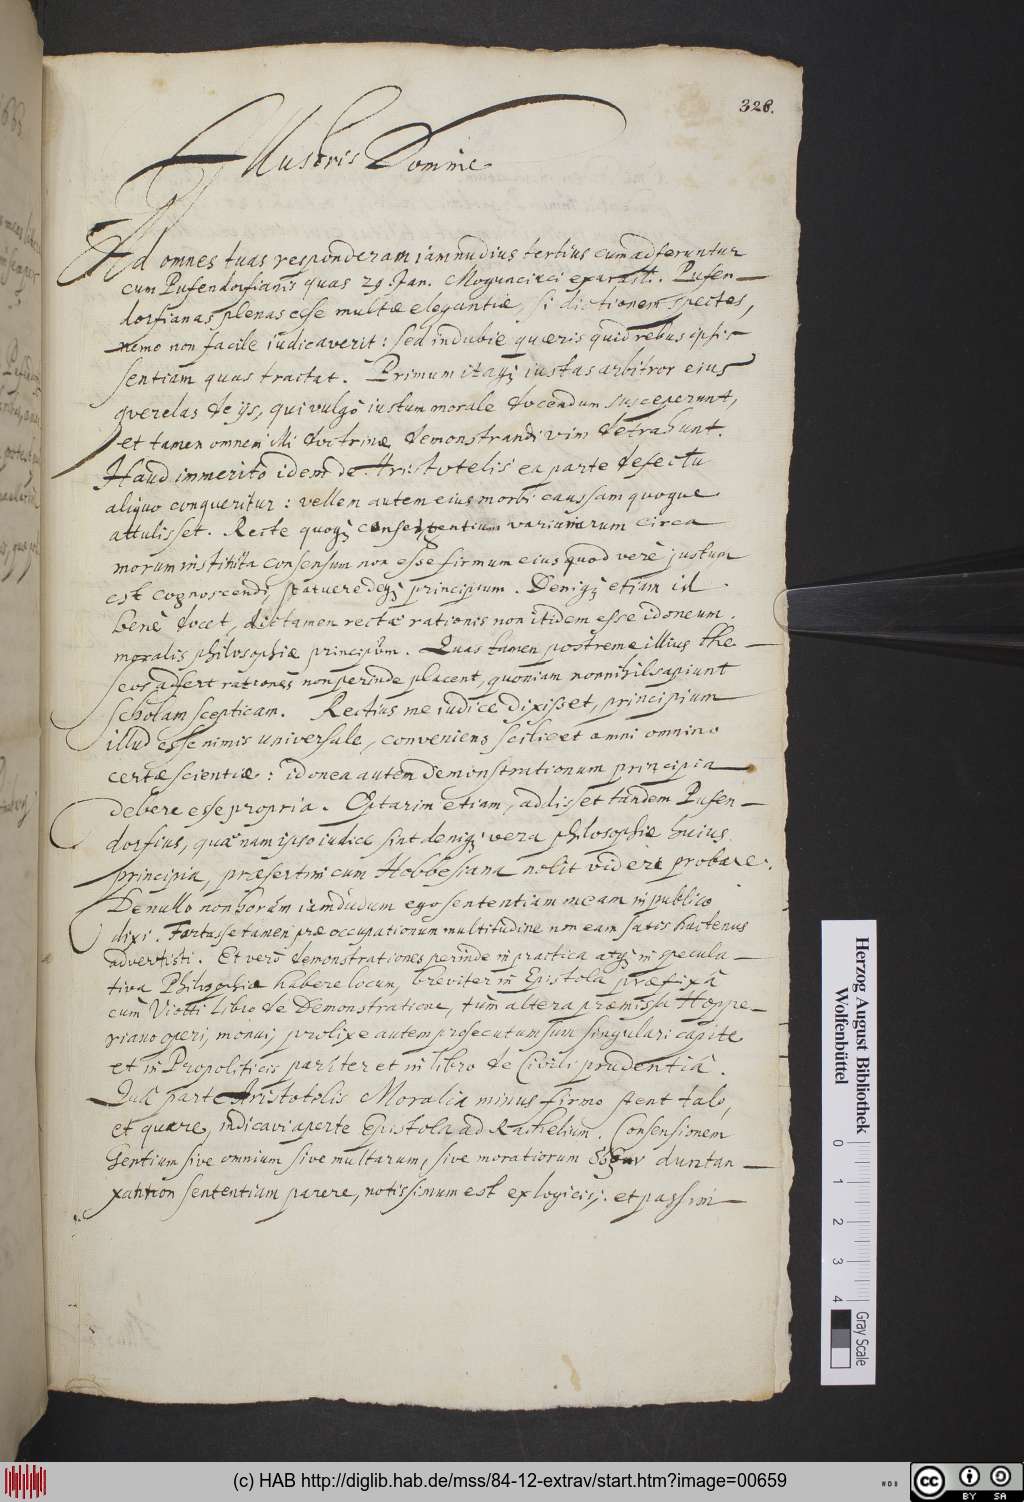 328.
Illustris Domine
Ad omnes tuas responderam iam nudius tertius cum adferuntur
cum Pufendorfianis quas 29. Jan. Moguncia exarasti. Pufen-
dorfianas plenas esse multæ elegantiæ, si dictionem spectes,
nemo non facile iudicaverit: sed indubie quæris quid rebus ipsis
sentiam quas tractat. Primum itaq; iustas arbitror eius
querelas de ijs, qui vulgò iustum morale docendum susceperunt,
et tamen omnem illi doctrinæ demonstrandi vim detrahunt.
Haud immeritò idem de Aristotelis ea parte defectu
aliquo conqueritur: vellem autem eius morbi caussam quoque
attulisset. Recte quoq; gentium variarum circa
morum instituta consensum non esse firmum eius quod verè justum
est cognoscendi, statuere deq; principium. Deniq; etiam id
benè docet, dictamen rectæ rationis non itidem esse idoneum
moralis philosophiæ principium. Quas tamen postremæ illius the-
seos adfert rationes non perinde placent, quoniam nonnihil sapiunt
scholam scepticam. Rectius me iudice dixisset, principium
illud esse nimis universale, conveniens scilicet omni omnino
certæ scientiæ: idonea autem demonstrationum principia
debere esse propria. Optarim etiam, addisset tandem Pufen-
dorfius, quænam ipso iudice sint deniq; vera philosophiæ huius
principia, præsertim cum Hobbesiana nolit videri probare.
De nullo non horum iamdudum ego sententiam meam in publico
dixi. Fortasse tamen præ occupationum multitudine non eam satis hactenus
advertisti. Et verò demonstrationes perinde in practica atq; in specula-
tiva Philosophia habere locum, breviter in Epistola præfixâ
cùm Viotti libro de Demonstratione, tùm altera præmissa Hoppe-
riano operi, monui; prolixe autem prosecutum sum singulari capite
et in Propoliticis pariter et in libro de Civili prudentiâ.
Quâ parte Aristotelis Moralia minus firmo stent talo,
et quare, indicavi aperte Epistola ad Rachelium. Consensionem
Gentium sive omnium sive multarum, sive moratiorum duntan-
xat non sententium parere, notissimum est ex logicis; et passim
Herzog August Bibliothek
Wolfenbüttel
0 1 2 3 4
Gray Scale
(c) HAB http://diglib.hab.de/mss/84-12-extrav/start.htm?image=00659
WDB
cc BY SA